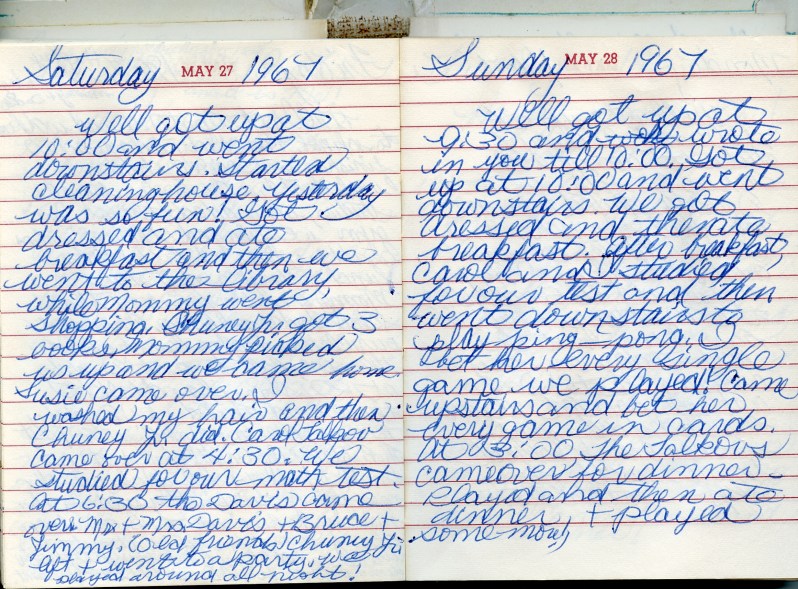 Saturday MAY 27 1967
Well got up at
10:00 and went
downstairs. Started
cleaning house yesterday
was so fun! Got
dressed and ate
breakfast and then we
went to the library,
while Mommy went
shopping. Chuney got 3
books. Mommy picked
us up and we came home.
Susie came over. I
washed my hair and then
Chuney did. Carol Talkov
came over at 4:30. We
studied for our math test.
At 6:30 the Davis came
over. Mr + Mrs Davis + Bruce +
Jimmy. (old friends) Chuney
left + went to a party. We
played around all night!
Sunday MAY 28 1967
Well got up at
9:30 and wrote
in you till 10:00. Got
up at 10:00 and went
downstairs. We got
dressed and then ate
breakfast. After breakfast,
Carol and I studied
for our test and then
went downstairs to
play ping-pong. I
bet her every single
game we played! Came
upstairs and bet her
every game in cards.
At 3:00 the Talkovs
came over for dinner -
Played and then ate
dinner, + played
some more,